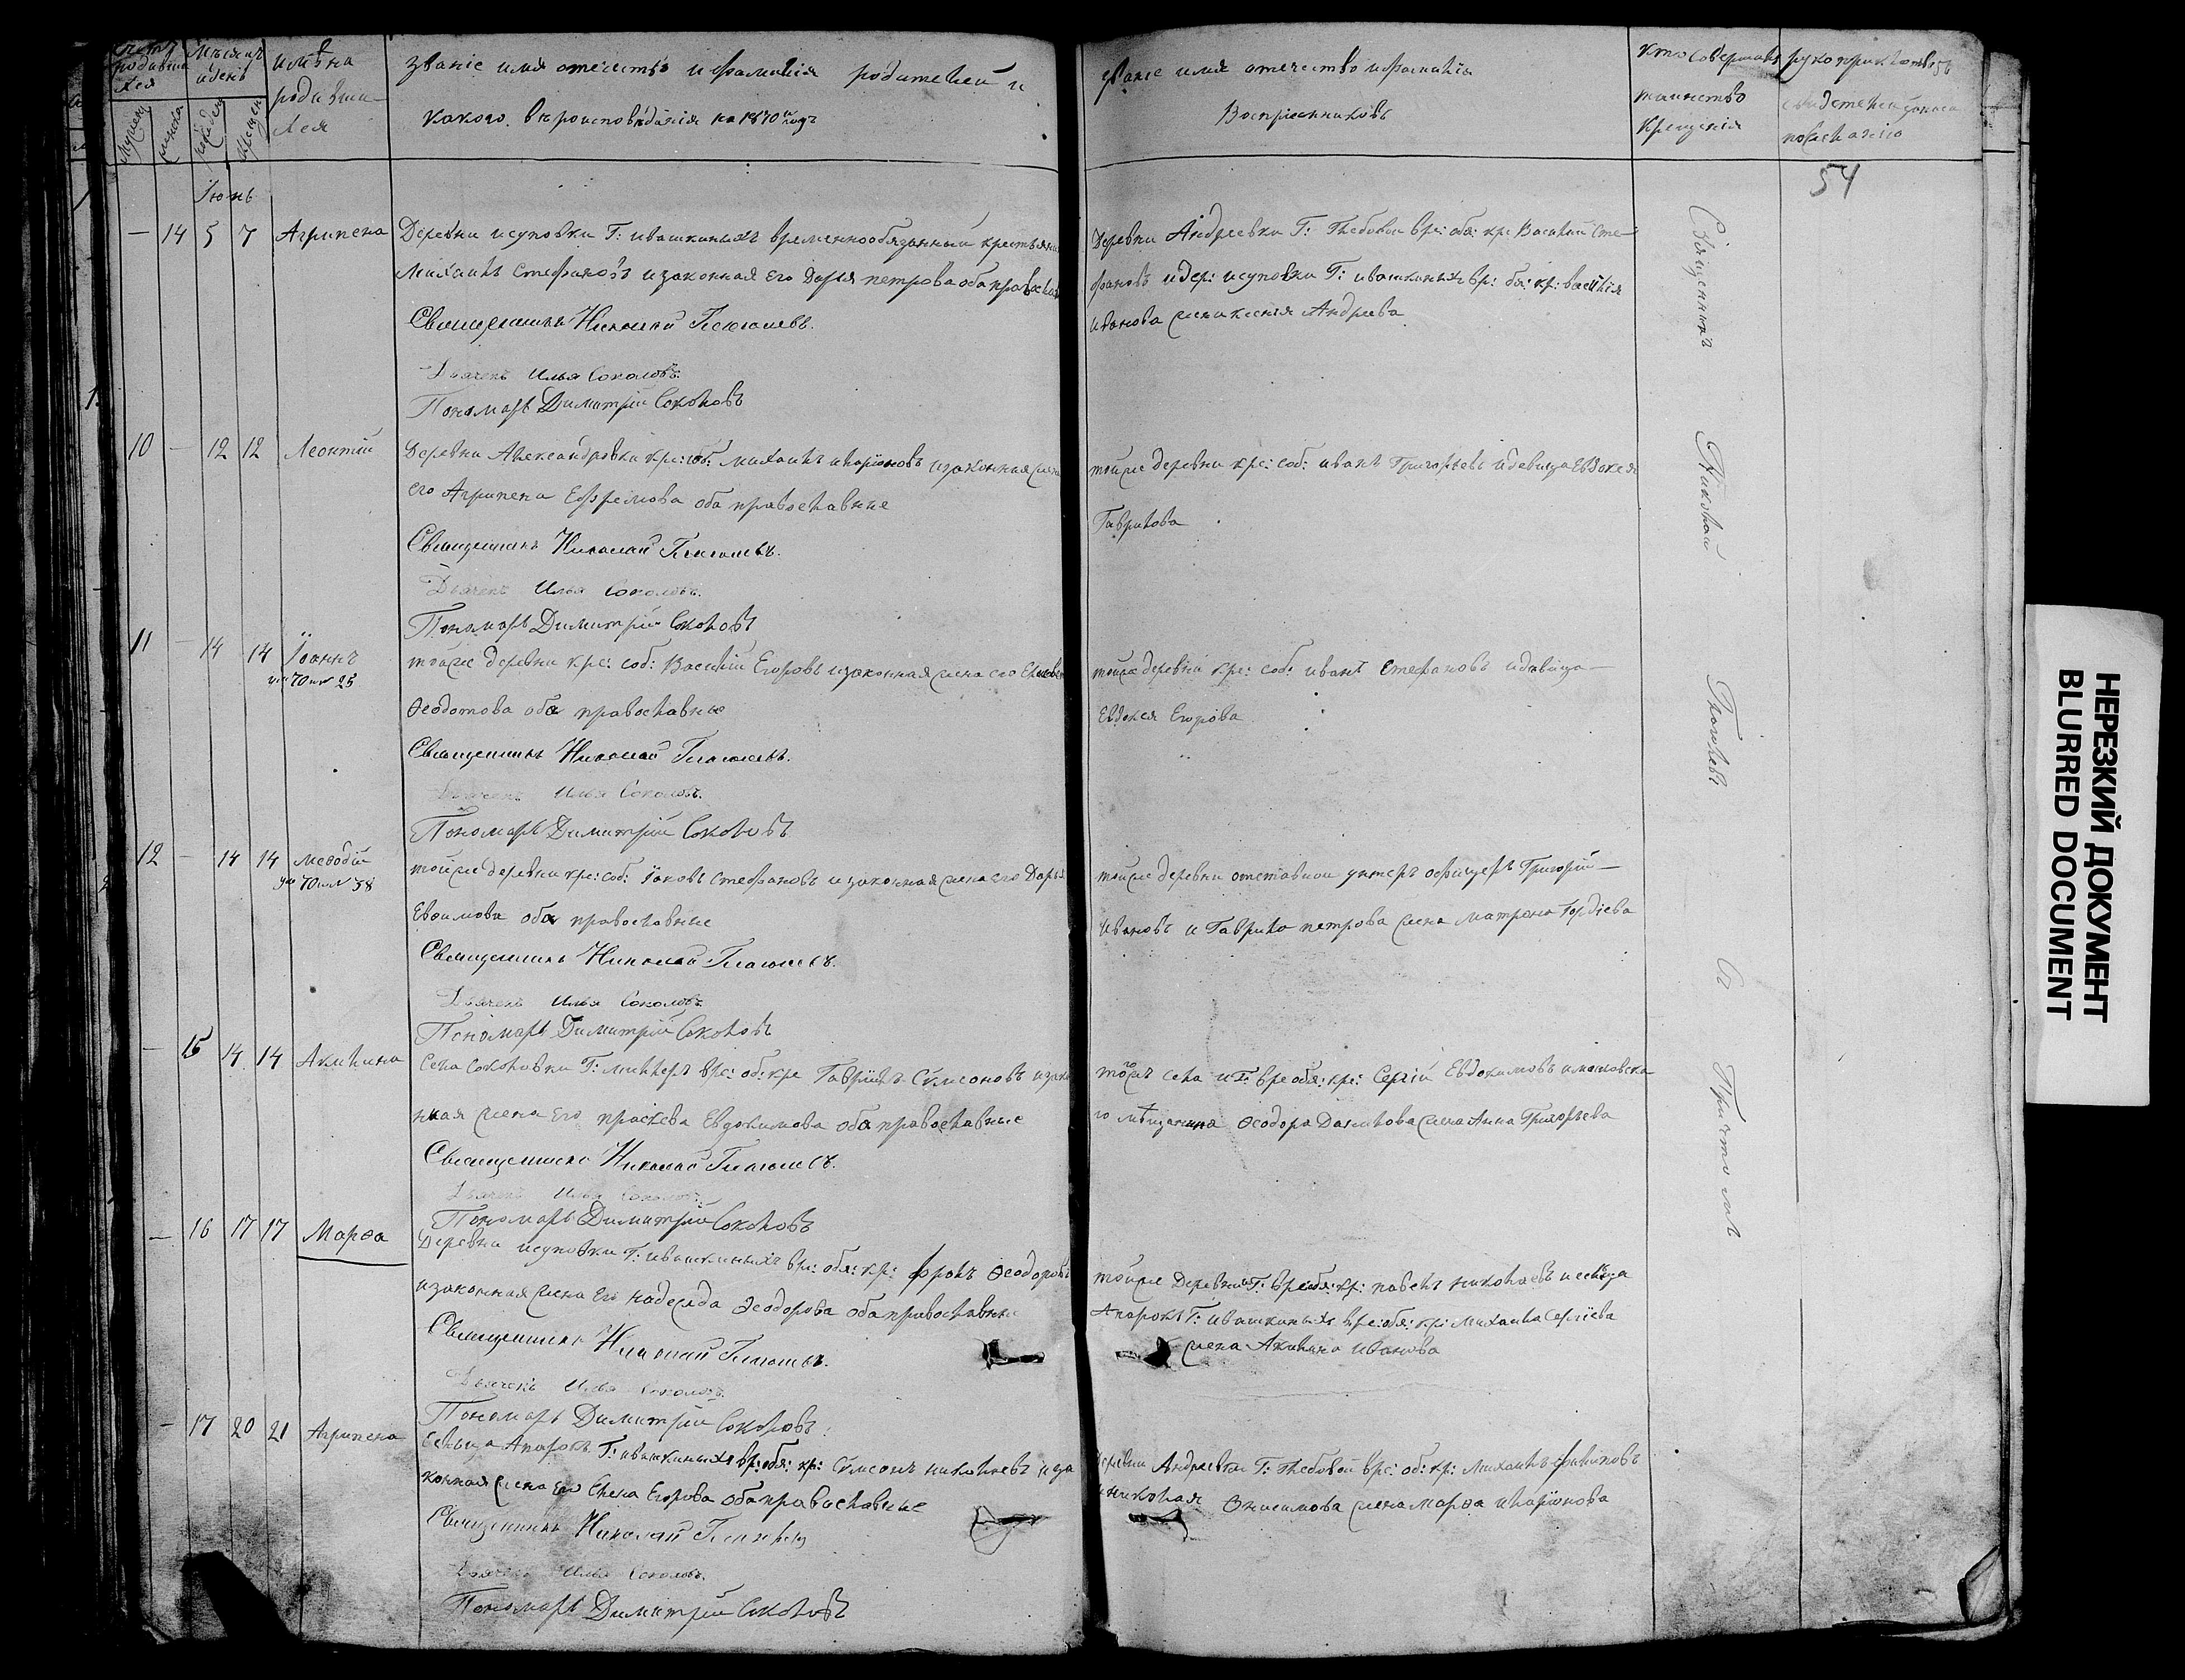 Счетъ родившихся
Мѣсяцъ и день
имена родившихся
званіе имя отечество и фамилія родителей и
какого вѣроисповѣданія на 1870й годъ
званіе имя отечество и фамилія
Воспріемниковъ
кто совершалъ таинство крещенія
рукоприкладство свидѣтелей записи по желанію
54
Іюнь
— 14 5 7 Агрипена
Деревни исуповки Г: ивашкиныхъ временнообязанный крестьянинъ
Михаилъ Стефановъ и законная его Дарья петрова оба православные
Священникъ Николай
Дьячекъ Илья Соколовъ.
Пономарь Димитрій Соколовъ
Деревни Андреевки Г: Глебовой вре: обя: кр: Василий Сте-
фановъ и дер: исуповки Г: ивашкиныхъ вр: бя: кр: василія
иванова жена ксенія Андреева
10 — 12 12 Леонтій
Деревни Александровки кре: соб: михаилъ иларіоновъ и законная жена
его Агрипена Ефремова оба православные
Священникъ Николай
Дьячекъ Илья Соколовъ.
Пономарь Димитрій Соколовъ
тойже деревни кре: соб: иванъ Григорьевъ и девица Евдокея
Гаврилова
11 — 14 14 Іоаннъ
ум 70 25
тойже деревни кре: соб: Василій Егоровъ и законная жена его
Ѳеодотова оба православные
Священникъ Николай
Дьячекъ Илья Соколовъ.
Пономарь Димитрій Соколовъ
тойже деревни кре: соб: иванъ Стефановъ и девица —
Евдокея Егорова
12 — 14 14 меѳодій
ум 70 38
тойже деревни кре: соб: Іаковъ стефановъ и законная жена его Дарья
Евѳимова оба православные
Священникъ Николай
Дьячекъ Илья Соколовъ
Пономарь Димитрій Соколовъ
тойже деревни отставной унтеръ офицеръ Григорій —
ивановъ и Гаврила петрова жена матрона Гордіева
— 15 14 14 Акилина
Села Соколовки Г: миллеръ вре: об: кре Гавріилъ Сѵмеоновъ и зако
нная жена его праскева Евдокимова оба православные
Священникъ Николай
Дьячекъ Илья Соколовъ.
Пономарь Димитрій Соколовъ
тогожъ села и Г: вре обя: кре: Сергій Евдокимовъ и московска
го мѣщанина Ѳеодора Данилова жена Анна Григорьева
— 16 17 17 Марѳа
Деревни исуповки Г: ивашкиныхъ вре: обя: кр: фролъ Ѳеодоровъ
и законная жена его надежда Ѳеодорова оба православные
Священникъ Николай
Дьячекъ Илья Соколовъ.
Пономарь Димитрій Соколовъ.
тойже Деревни и Г: вре обя: кр: павелъ николаевъ и сельца
Апарокъ Г: ивашкиныхъ вре: обя: кр: михаила Сергіева
жена Акилина иванова
— 17 20 21 Агрипена
Сельца Апарокъ Г: ивашкиныхъ вр: обя: кр: Сѵмеонъ николаевъ и за
конная жена его Елена Егорова оба православные
Священникъ Николай
Дьячекъ Илья Соколовъ.
Пономарь Димитрій Соколовъ
Деревни Андреевки Г: Глебовой вре: об: кр: михаилъ филиповъ
и николая Онисимова жена марѳа иларіонова
Священникъ Николай съ Причтомъ
НЕРЕЗКИЙ ДОКУМЕНТ
BLURRED DOCUMENT